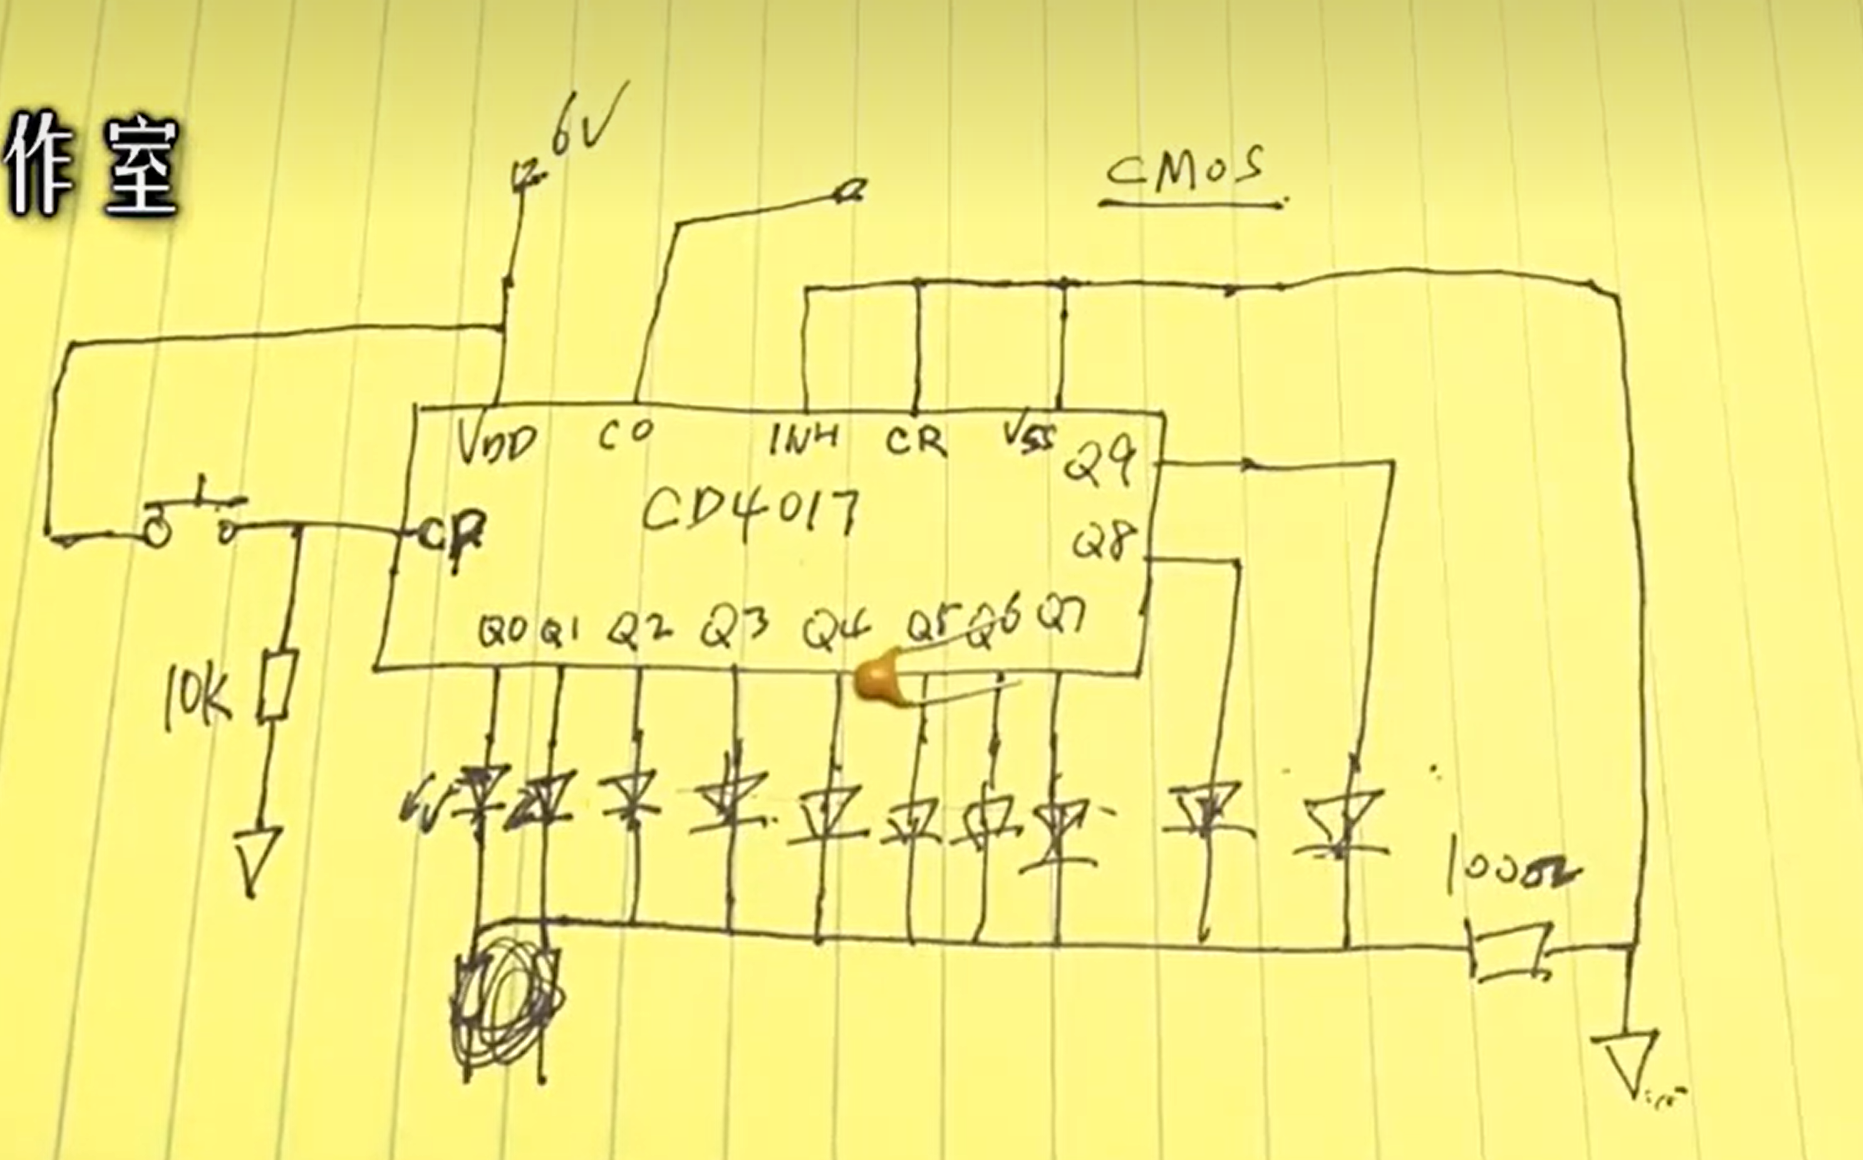 作室
6V
CMOS
VDD CO INH CR VSS
Q9
CD4017
CP
Q8
Q0 Q1 Q2 Q3 Q4 Q5 Q6 Q7
10K
100Ω